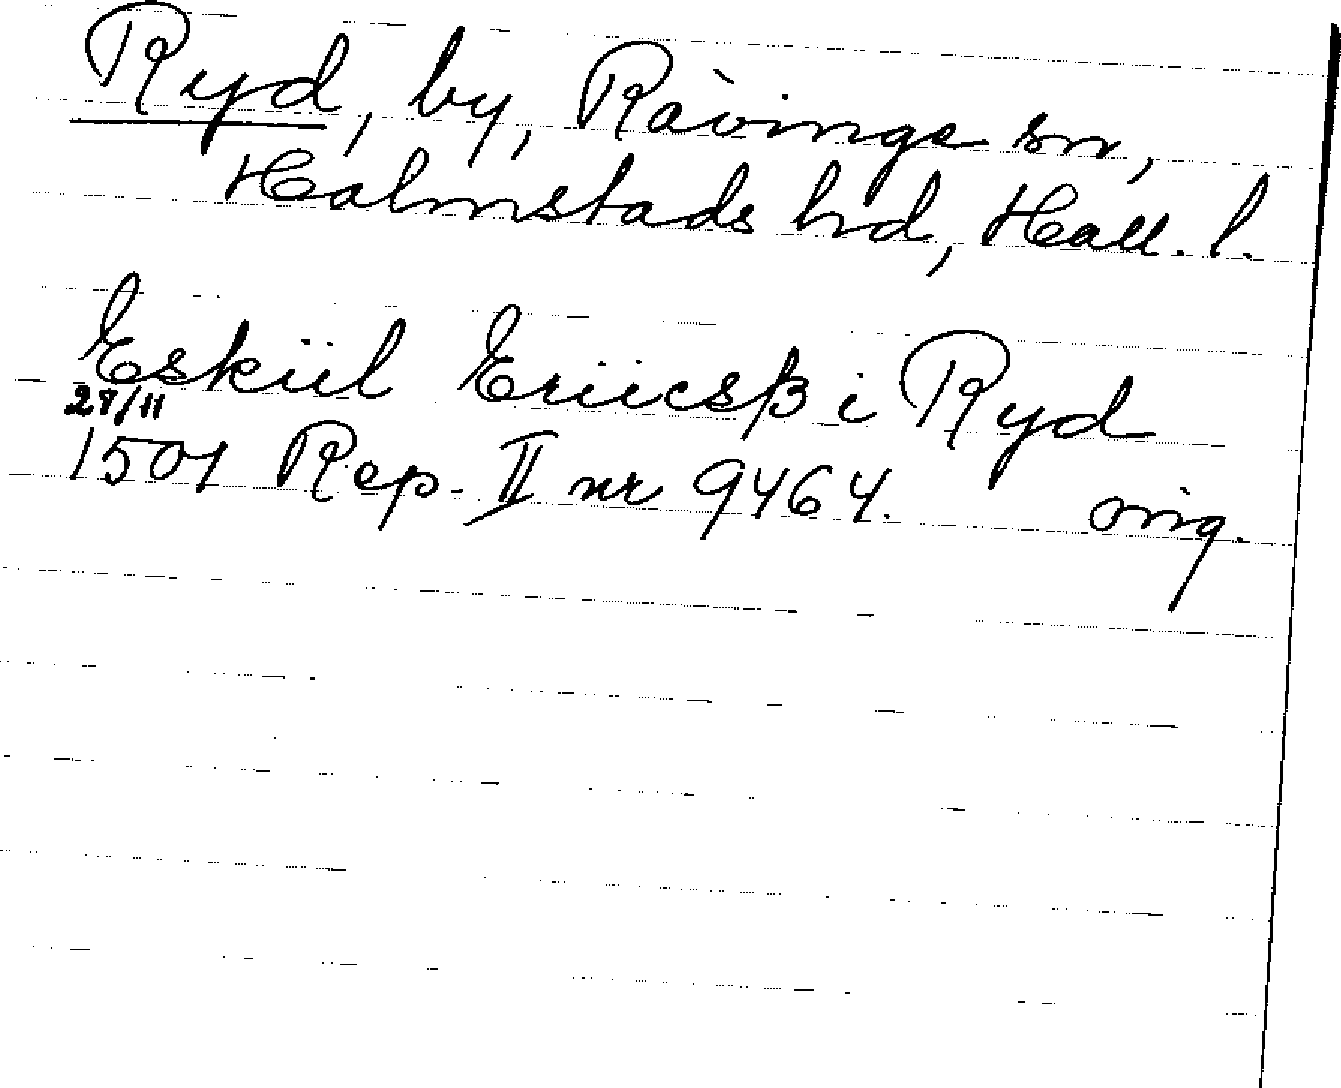 Ryd, by, Rävinge sn,
Halmstads hd, Hall. l.
Eskiil Eriicsß i Ryd
28/11
1501 Rep. II nr 9464. orig.